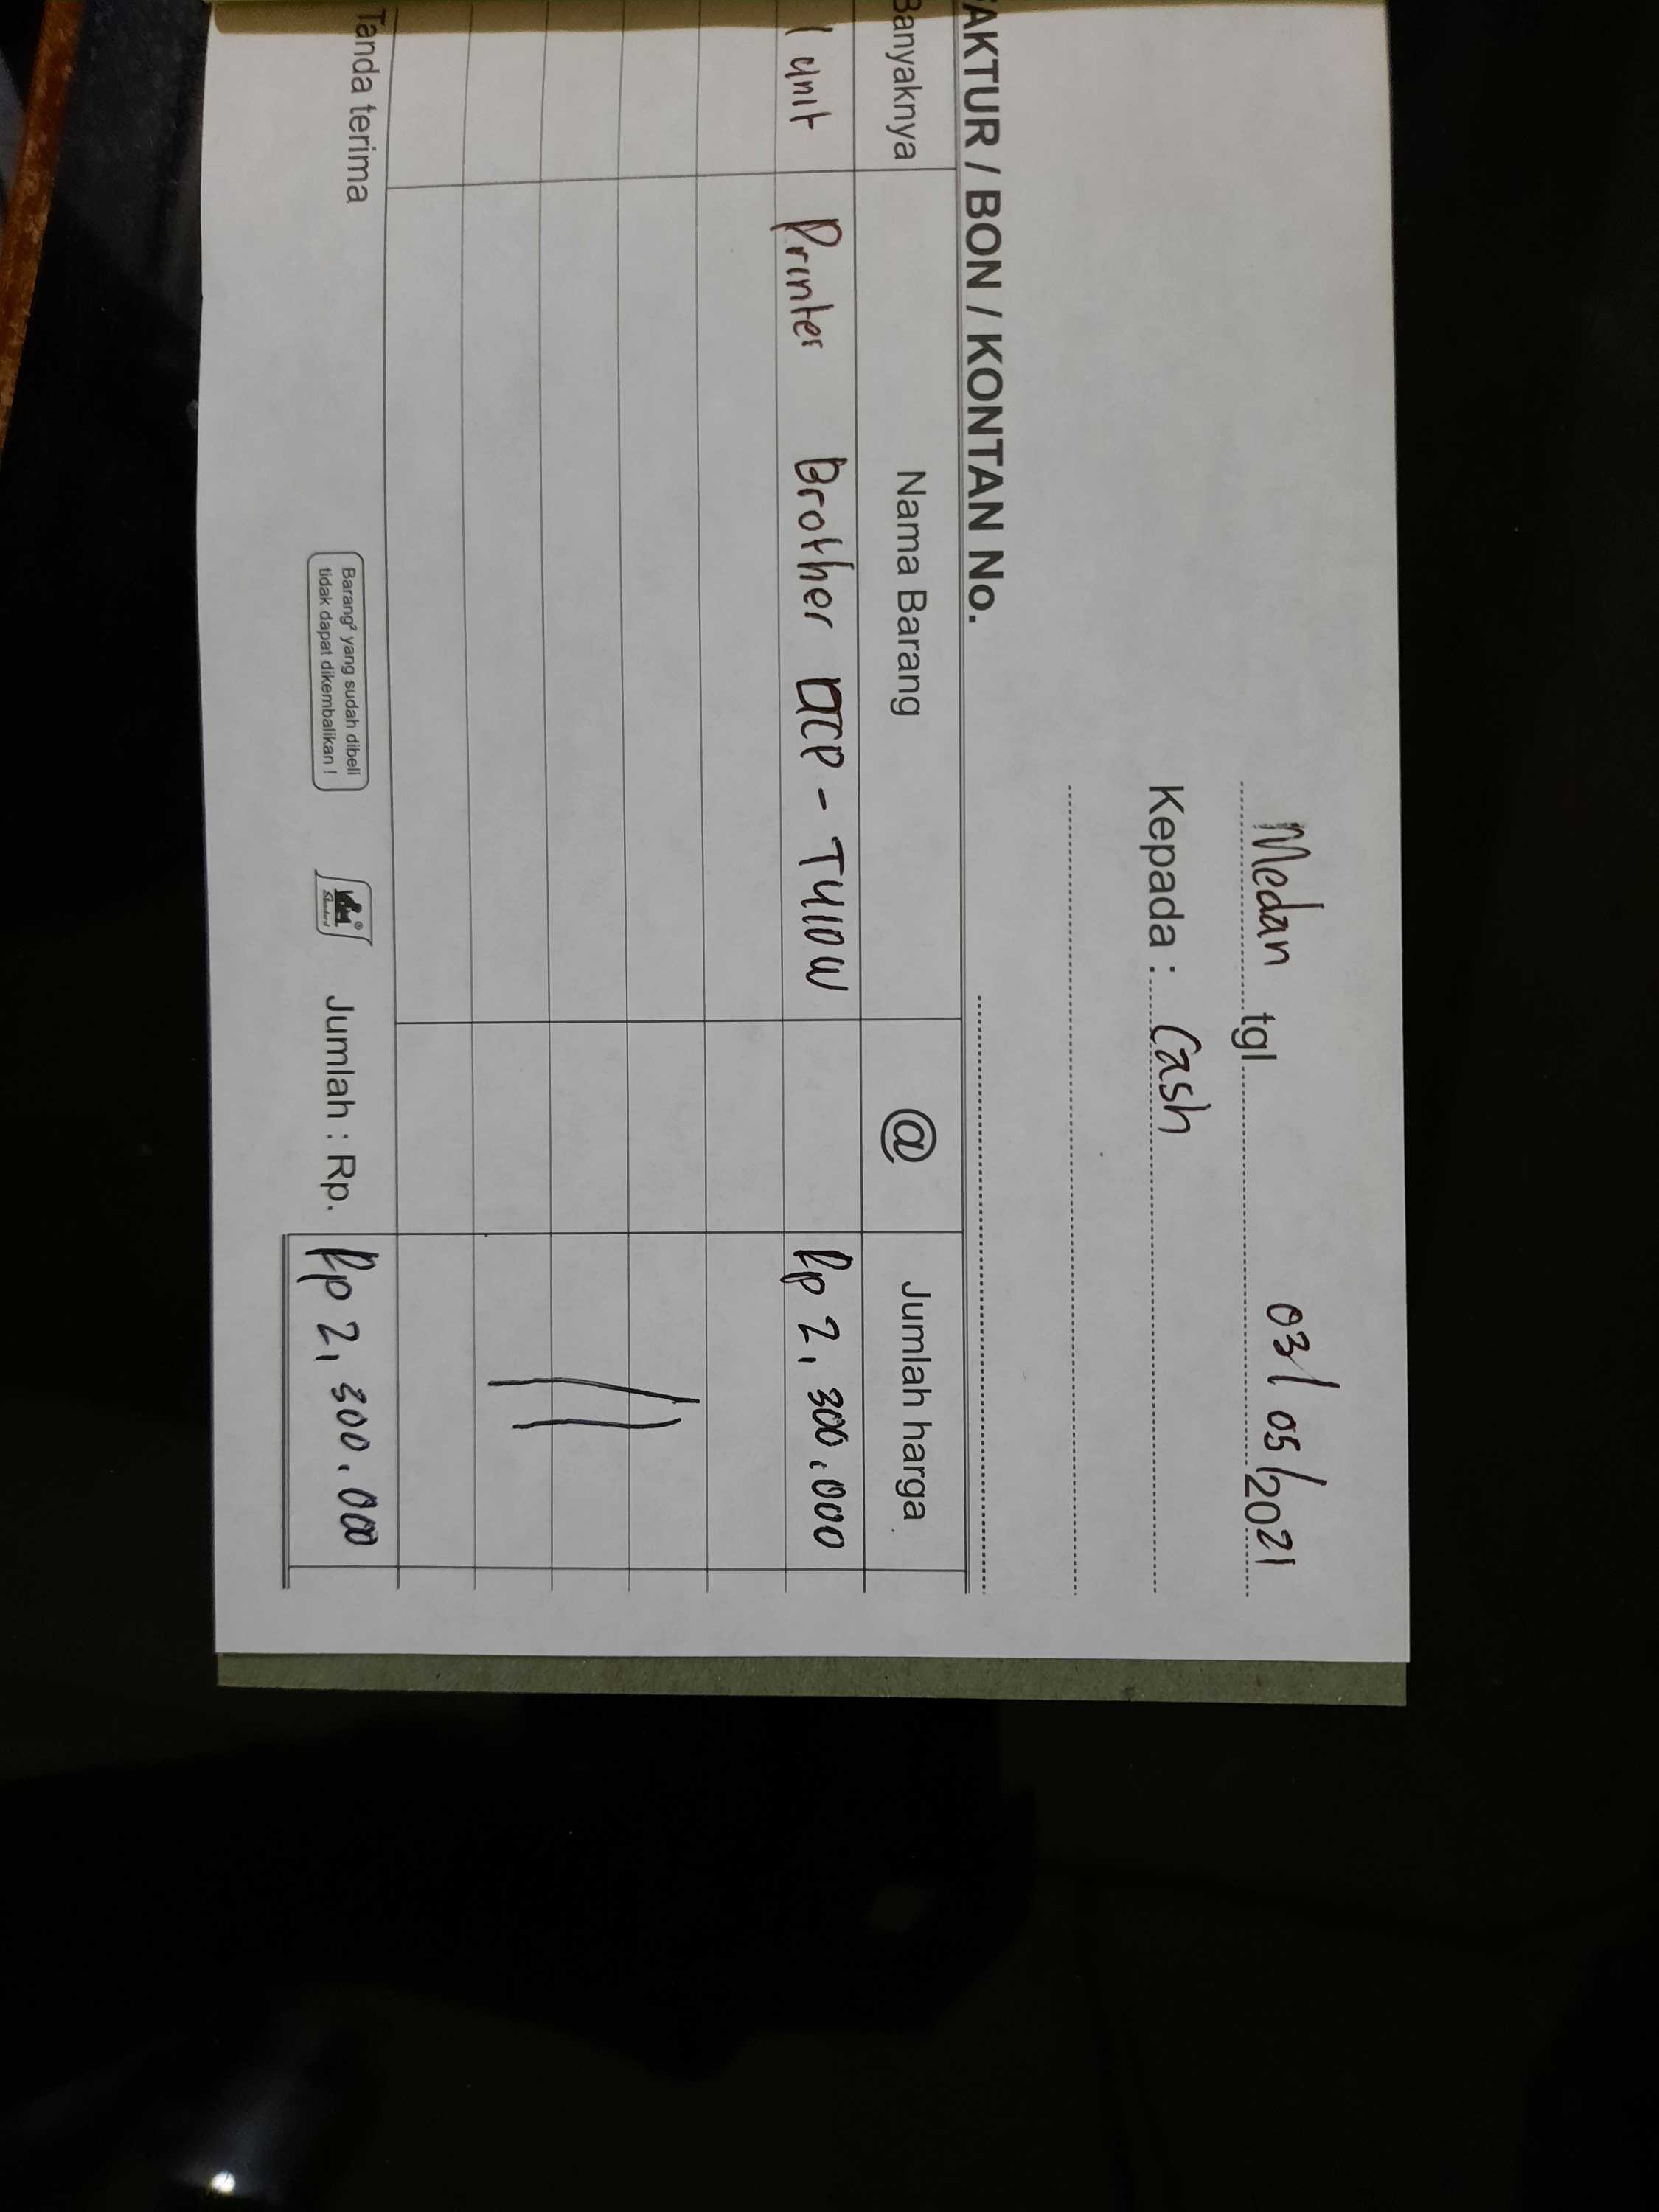 Medan tgl 03/05/2021
Kepada : Cash
FAKTUR / BON / KONTAN No.
Banyaknya Nama Barang @ Jumlah harga
1 unit Printer Brother DCP - T410W Rp 2,300.000
Tanda terima
Barang² yang sudah dibeli
tidak dapat dikembalikan !
Standard
Jumlah : Rp. Rp 2,300.000